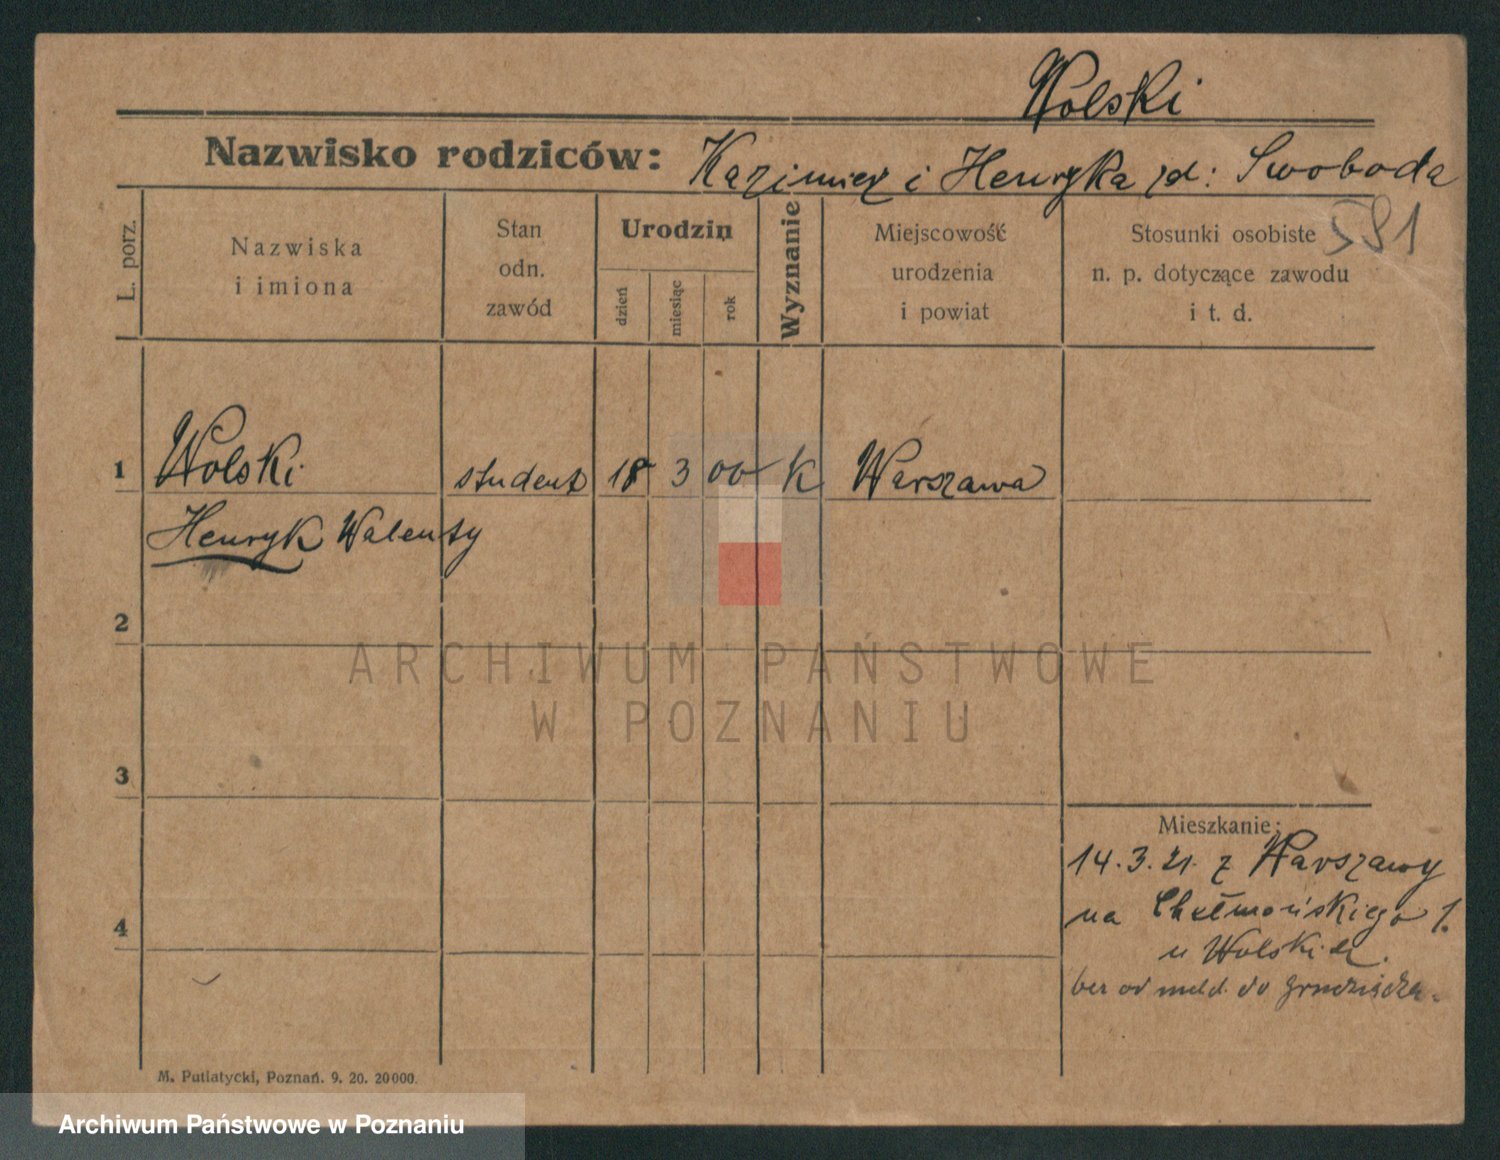 Wolski
Nazwisko rodziców: Kazimierz i Henryka zd: Swoboda
591
L. porz.
Nazwiska
i imiona
Stan
odn.
zawód
Urodzin
dzień
miesiąc
rok
Wyznanie
Miejscowość
urodzenia
i powiat
Stosunki osobiste
n. p. dotyczące zawodu
i t. d.
1 Wolski student 18 3 00 K Warszawa
Henryk Walenty
2
ARCHIWUM PAŃSTWOWE
W POZNANIU
3
Mieszkanie:
14.3.21. z Warszawy
na Chełmońskiego 1.
u Wolskich.
bez od meld. do Grudziądza.
4
M. Putiatycki, Poznań. 9. 20. 20000.
Archiwum Państwowe w Poznaniu